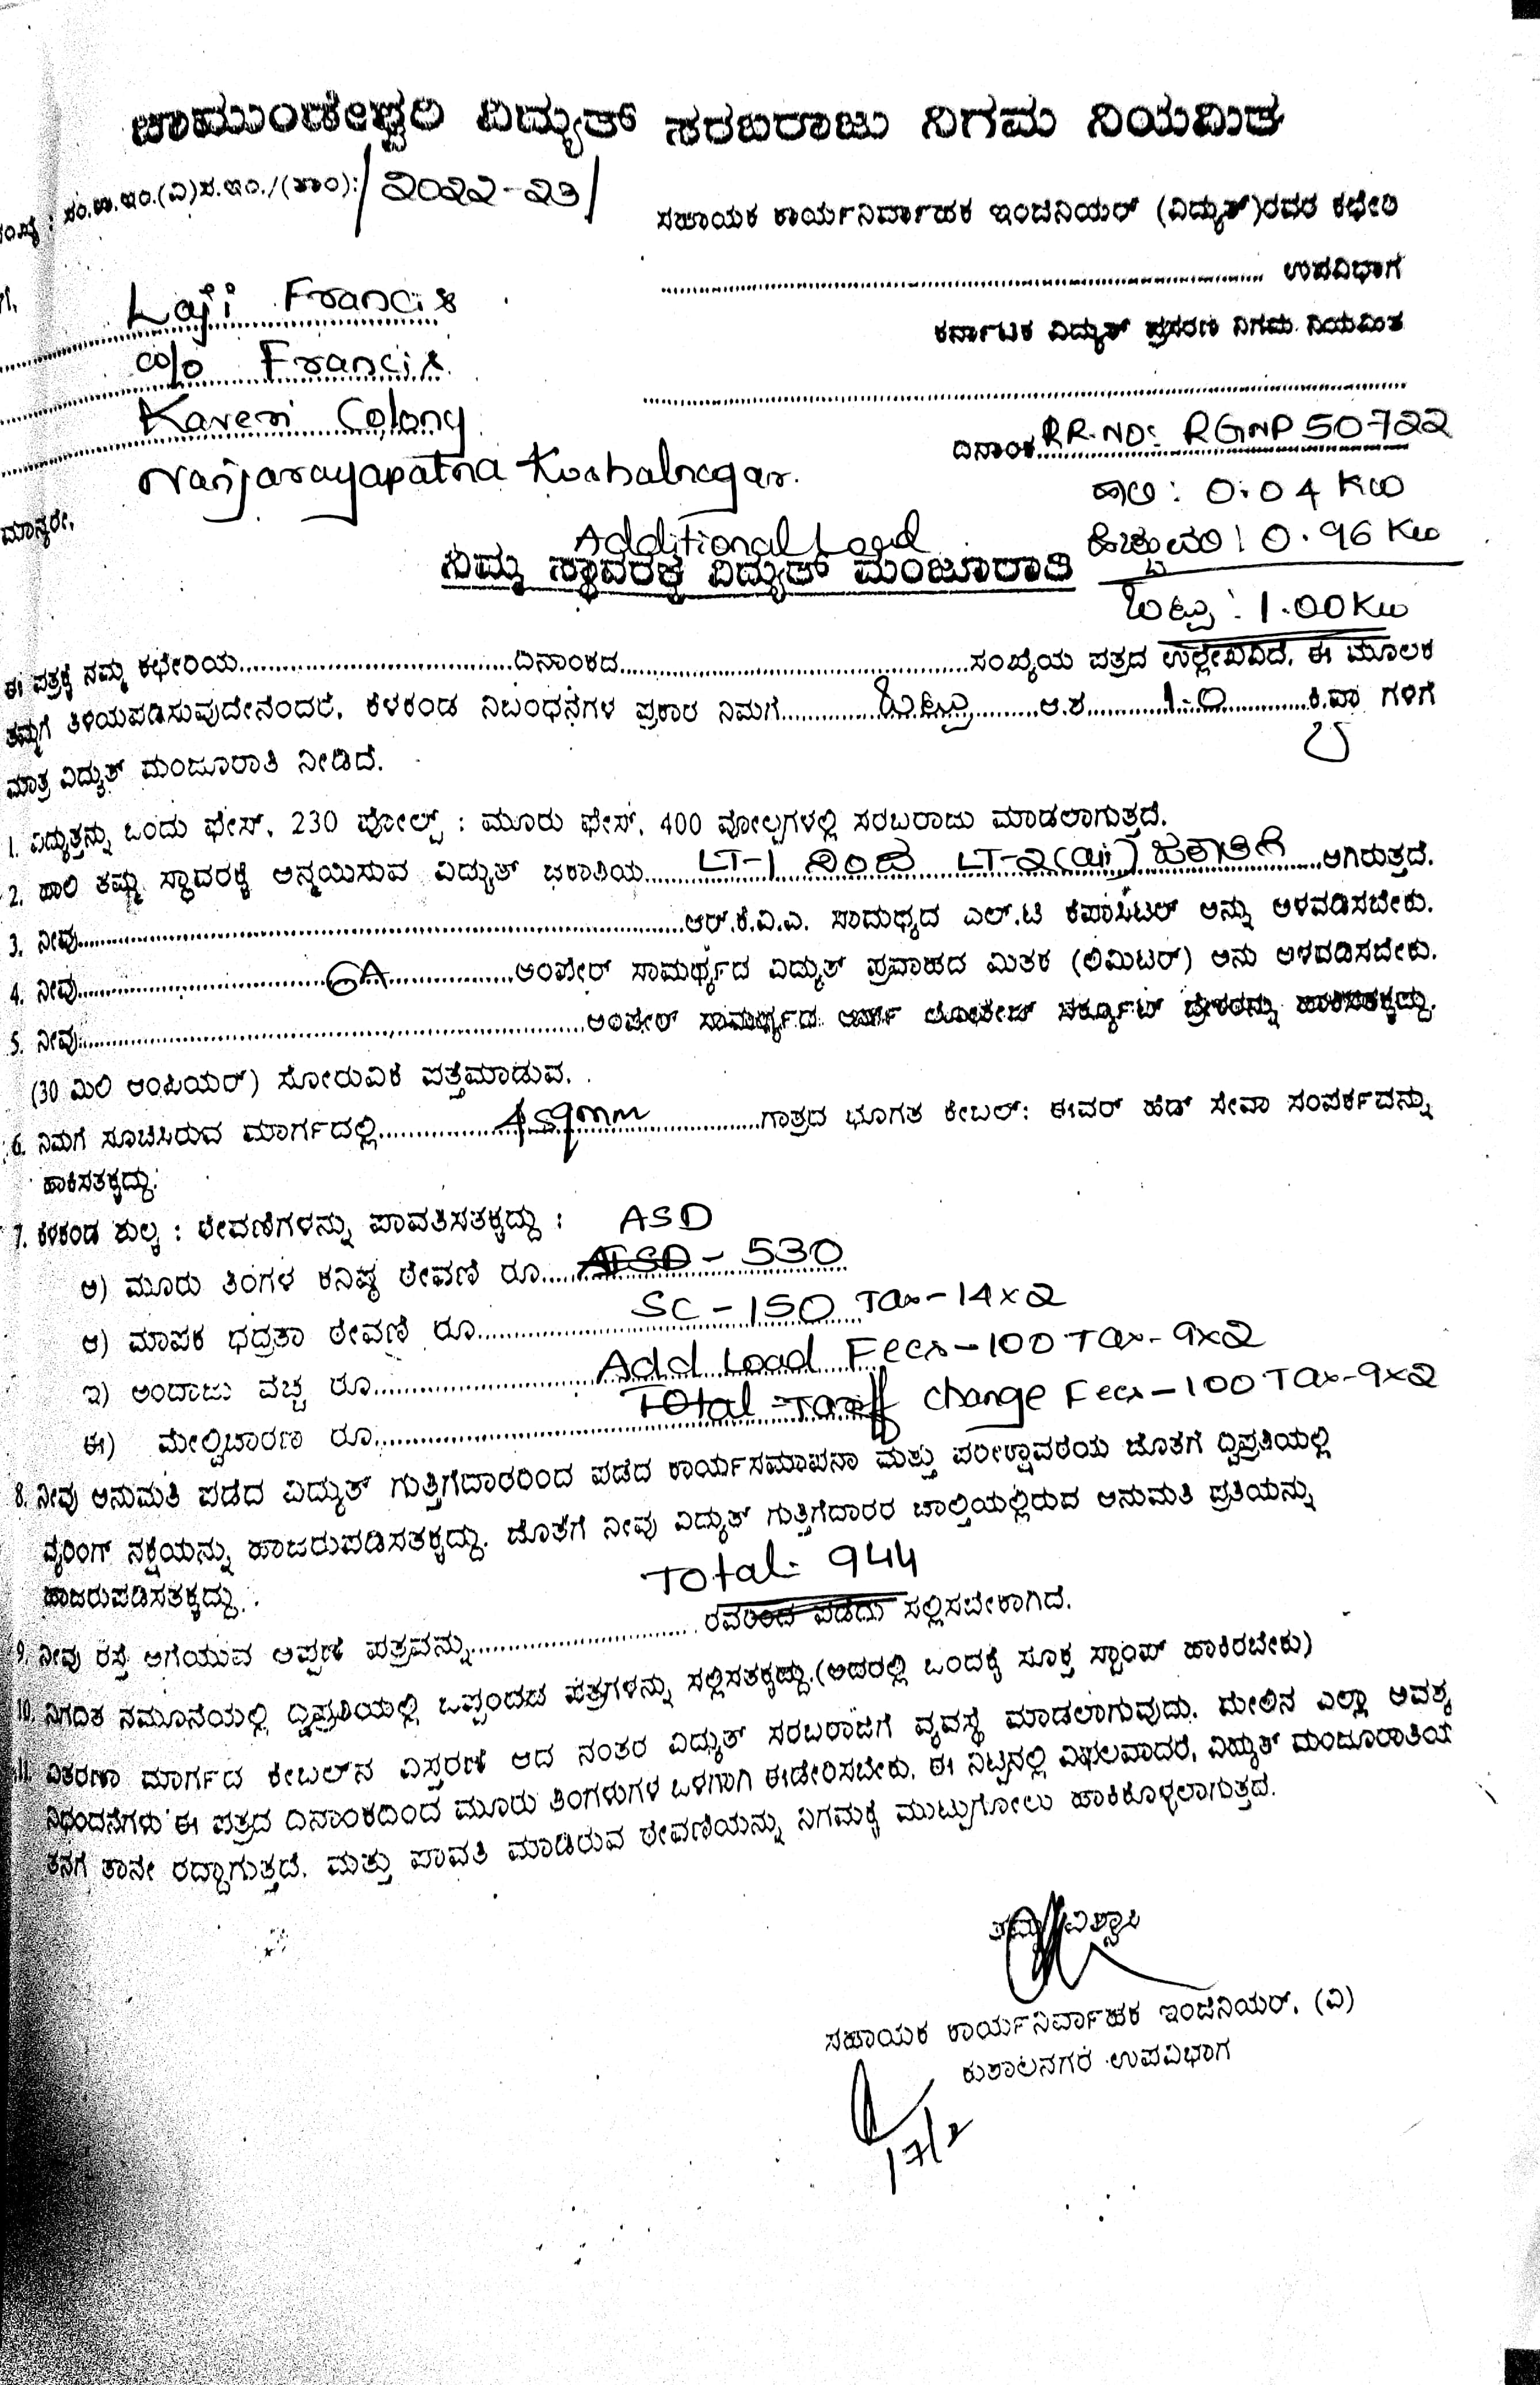 ಚಾಮುಂಡೇಶ್ವರಿ ವಿದ್ಯುತ್ ಸರಬರಾಜು ನಿಗಮ ನಿಯಮಿತ
ಸಂಖ್ಯೆ : ಸಂ.ಕಾ.ಇಂ.(ವಿ)ಸ.ಇಂ./(ಕಾಂ):/2022-23/
ಸಹಾಯಕ ಕಾರ್ಯನಿರ್ವಾಹಕ ಇಂಜಿನಿಯರ್ (ವಿದ್ಯುತ್)ರವರ ಕಛೇರಿ
ಉಪವಿಭಾಗ
ಕರ್ನಾಟಕ ವಿದ್ಯುತ್ ಪ್ರಸರಣ ನಿಗಮ ನಿಯಮಿತ
Laji Francis
c/o Francis
Kaveri Colony
Nanjarayapatna Kushalnagar.
ದಿನಾಂಕ RR.NO: RGNP 50722
ಹಾಲಿ : 0.04 KW
ಹೆಚ್ಚುವರಿ : 0.96 KW
ಒಟ್ಟು : 1.00 KW
ಮಾನ್ಯರೇ,
Additional Load
ನಿಮ್ಮ ಸ್ಥಾವರಕ್ಕೆ ವಿದ್ಯುತ್ ಮಂಜೂರಾತಿ
ಈ ಪತ್ರಕ್ಕೆ ನಮ್ಮ ಕಛೇರಿಯ..........ದಿನಾಂಕದ..........ಸಂಖ್ಯೆಯ ಪತ್ರದ ಉಲ್ಲೇಖವಿದೆ. ಈ ಮೂಲಕ
ತಮ್ಮಗೆ ತಿಳಿಯಪಡಿಸುವುದೇನೆಂದರೆ, ಕೆಳಕಂಡ ನಿಬಂಧನೆಗಳ ಪ್ರಕಾರ ನಿಮಗೆ.......ಒಟ್ಟು.......ಆ.ಶ.......1.0.......ಕಿ.ವಾ ಗಳಿಗೆ
ಮಾತ್ರ ವಿದ್ಯುತ್ ಮಂಜೂರಾತಿ ನೀಡಿದೆ.
1. ವಿದ್ಯುತ್ತನ್ನು ಒಂದು ಫೇಸ್, 230 ವೋಲ್ಟ್ : ಮೂರು ಫೇಸ್, 400 ವೋಲ್ಟಗಳಲ್ಲಿ ಸರಬರಾಜು ಮಾಡಲಾಗುತ್ತದೆ.
2. ಹಾಲಿ ತಮ್ಮ ಸ್ಥಾವರಕ್ಕೆ ಅನ್ವಯಿಸುವ ವಿದ್ಯುತ್ ಜಕಾತಿಯ.....LT-1 ನಿಂದ LT-2(aii) ಜಕಾತಿಗೆ.....ಆಗಿರುತ್ತದೆ.
3. ನೀವು..........ಆರ್.ಕೆ.ವಿ.ಎ. ಸಾಮರ್ಥ್ಯದ ಎಲ್.ಟಿ ಕೆಪಾಸಿಟರ್ ಅನ್ನು ಅಳವಡಿಸಬೇಕು.
4. ನೀವು..........6A..........ಆಂಪೇರ್ ಸಾಮರ್ಥ್ಯದ ವಿದ್ಯುತ್ ಪ್ರವಾಹದ ಮಿತಕ (ಲಿಮಿಟರ್) ಅನು ಅಳವಡಿಸಬೇಕು.
5. ನೀವು..........ಆಂಪೇರ್ ಸಾಮರ್ಥ್ಯದ ಅರ್ಥ್ ಲೀಕೇಜ್ ಸರ್ಕ್ಯೂಟ್ ಬ್ರೇಕರನ್ನು ಹಾಕಿಸತಕ್ಕದ್ದು.
(30 ಮಿಲಿ ಆಂಪಿಯರ್) ಸೋರುವಿಕೆ ಪತ್ತೆಮಾಡುವ.
6. ನಿಮಗೆ ಸೂಚಿಸಿರುವ ಮಾರ್ಗದಲ್ಲಿ..........4 sqmm..........ಗಾತ್ರದ ಭೂಗತ ಕೇಬಲ್: ಈವರ್ ಹೆಡ್ ಸೇವಾ ಸಂಪರ್ಕವನ್ನು
ಹಾಕಿಸತಕ್ಕದ್ದು.
7. ಕೆಳಕಂಡ ಶುಲ್ಕ : ಠೇವಣಿಗಳನ್ನು ಪಾವತಿಸತಕ್ಕದ್ದು : ASD
ಅ) ಮೂರು ತಿಂಗಳ ಕನಿಷ್ಠ ಠೇವಣಿ ರೂ..... - 530
ಆ) ಮಾಪಕ ಭದ್ರತಾ ಠೇವಣಿ ರೂ..... SC - 150 Tax - 14x2
ಇ) ಅಂದಾಜು ವೆಚ್ಚ ರೂ..... Add Load Fees - 100 Tax - 9x2
ಈ) ಮೇಲ್ವಿಚಾರಣಾ ರೂ..... Total Tariff change Fees - 100 Tax - 9x2
8. ನೀವು ಅನುಮತಿ ಪಡೆದ ವಿದ್ಯುತ್ ಗುತ್ತಿಗೆದಾರರಿಂದ ಪಡೆದ ಕಾರ್ಯಸಮಾಪನಾ ಮತ್ತು ಪರೀಕ್ಷಾವರದಿಯ ಜೊತೆಗೆ ದ್ವಿಪ್ರತಿಯಲ್ಲಿ
ವೈರಿಂಗ್ ನಕ್ಷೆಯನ್ನು ಹಾಜರುಪಡಿಸತಕ್ಕದ್ದು. ಜೊತೆಗೆ ನೀವು ವಿದ್ಯುತ್ ಗುತ್ತಿಗೆದಾರರ ಚಾಲ್ತಿಯಲ್ಲಿರುವ ಅನುಮತಿ ಪ್ರತಿಯನ್ನು
ಹಾಜರುಪಡಿಸತಕ್ಕದ್ದು.
Total - 944
9. ನೀವು ರಸ್ತೆ ಅಗೆಯುವ ಅಪ್ಪಣೆ ಪತ್ರವನ್ನು..........ರವರಿಂದ ಪಡೆದು ಸಲ್ಲಿಸಬೇಕಾಗಿದೆ.
10. ನಿಗದಿತ ನಮೂನೆಯಲ್ಲಿ ದ್ವಿಪ್ರತಿಯಲ್ಲಿ ಒಪ್ಪಂದದ ಪತ್ರಗಳನ್ನು ಸಲ್ಲಿಸತಕ್ಕದ್ದು.(ಅದರಲ್ಲಿ ಒಂದಕ್ಕೆ ಸೂಕ್ತ ಸ್ಟಾಂಪ್ ಹಾಕಿರಬೇಕು)
11. ವಿತರಣಾ ಮಾರ್ಗದ ಕೇಬಲ್‌ನ ವಿಸ್ತರಣೆ ಆದ ನಂತರ ವಿದ್ಯುತ್ ಸರಬರಾಜಿಗೆ ವ್ಯವಸ್ಥೆ ಮಾಡಲಾಗುವುದು. ಮೇಲಿನ ಎಲ್ಲಾ ಅವಶ್ಯ
ನಿಬಂದನೆಗಳು ಈ ಪತ್ರದ ದಿನಾಂಕದಿಂದ ಮೂರು ತಿಂಗಳುಗಳ ಒಳಗಾಗಿ ಈಡೇರಿಸಬೇಕು. ಈ ನಿಟ್ಟನಲ್ಲಿ ವಿಫಲವಾದರೆ, ವಿದ್ಯುತ್ ಮಂಜೂರಾತಿಯ
ತನಗೆ ತಾನೇ ರದ್ದಾಗುತ್ತದೆ. ಮತ್ತು ಪಾವತಿ ಮಾಡಿರುವ ಠೇವಣಿಯನ್ನು ನಿಗಮಕ್ಕೆ ಮುಟ್ಟುಗೋಲು ಹಾಕಿಕೊಳ್ಳಲಾಗುತ್ತದೆ.
ತಮ್ಮ ವಿಶ್ವಾಸಿ
ಸಹಾಯಕ ಕಾರ್ಯನಿರ್ವಾಹಕ ಇಂಜಿನಿಯರ್, (ವಿ)
ಕುಶಾಲನಗರ ಉಪವಿಭಾಗ
17/2